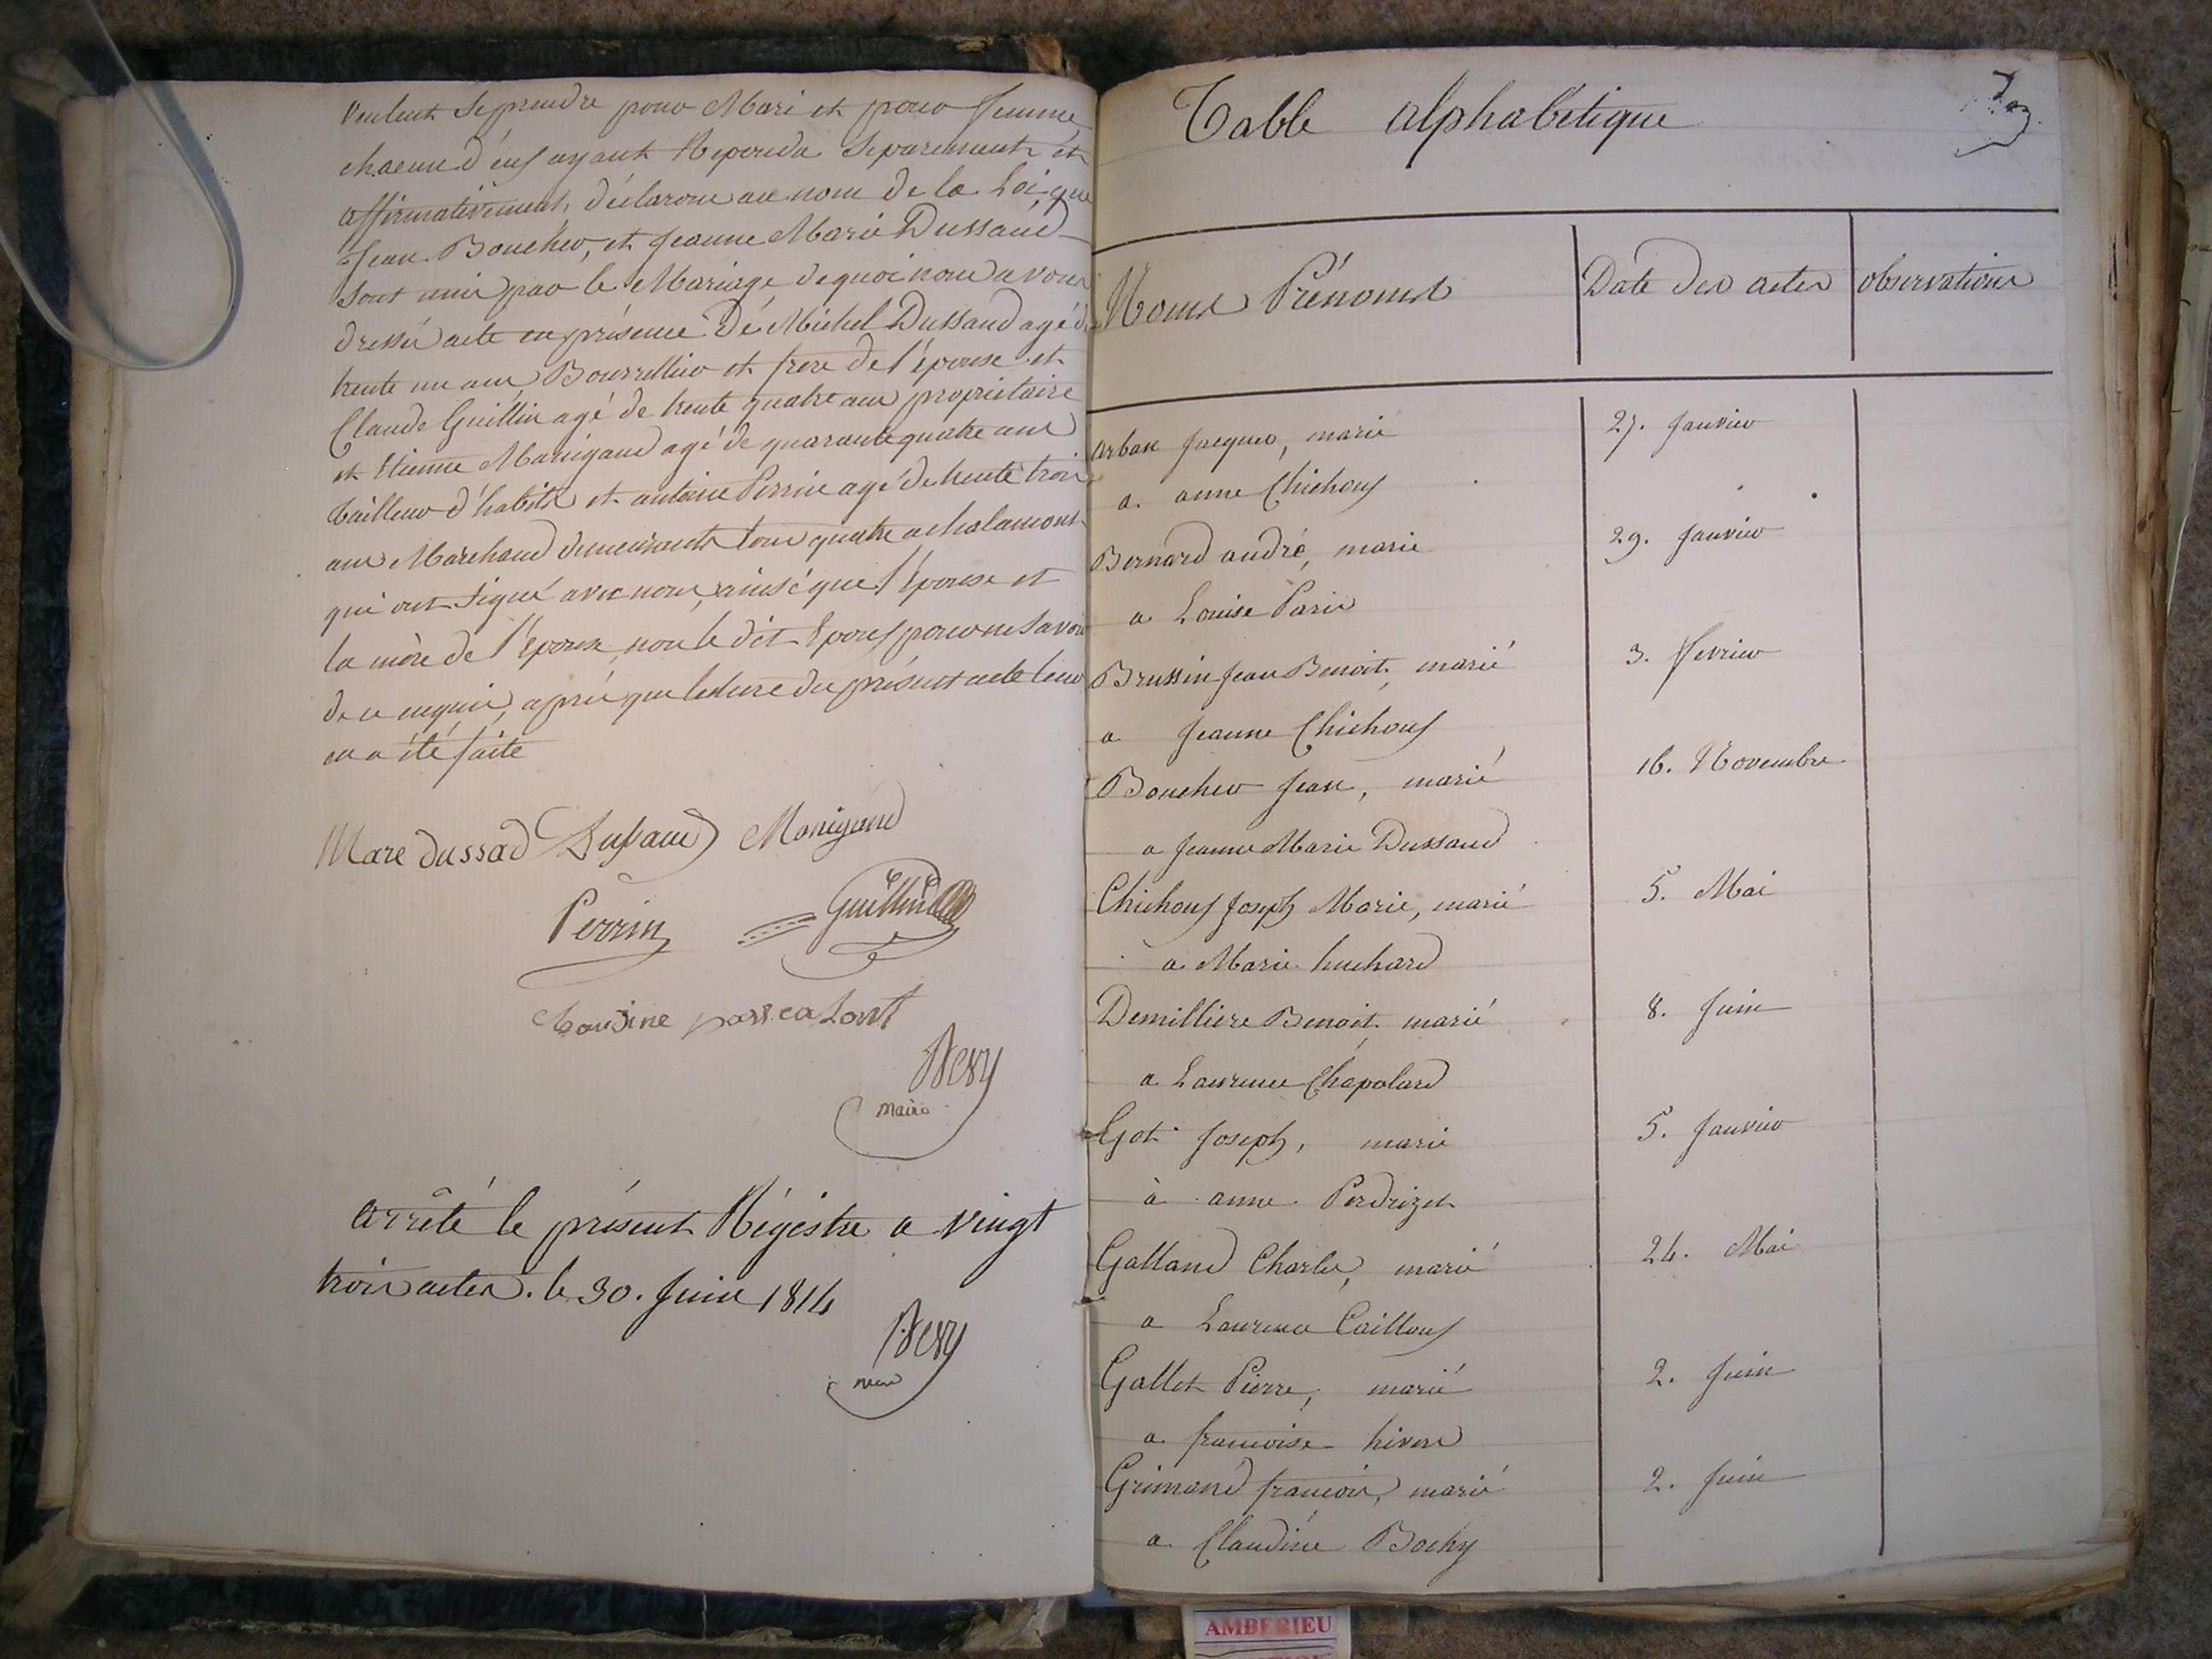 veulent se prendre pour Mari et pour femme
chacun d'eux ayant Repondu Separement et
affirmativement, déclarons au nom de la Loi, que
Jean Boucher, et Jeanne Marie Dussaud
sont unis par le Mariage, de quoi nous avons
dressé acte en présence De Michel Dussaud agé de
trente un ans Bourrellier et frere de l'épouse et
Claude Guillin agé de trente quatre ans propriétaire
et Etienne Manigand agé de quarante quatre ans
tailleur d'habits et antoine Perrin agé de trente trois
ans Marchand demeurants tous quatre a chalamont
qui ont signé avec nous, ainsi que l'Epouse et
la mère de l'Epoux, non le dit Epoux pour ne savoir
de ce enquis, après que lecture du présent acte leur
en a été faite
Mare dussad Dussaud Manigand
Perrin Guillin
maire
arrêté le présent Régistre a vingt
trois actes. le 30. Juin 1814
Table alphabétique
Noms Prénoms
Date des actes
observations
arban Jacques, marié
27. Janvier
a. anne Chichoux
Bernard andré, marié
29. Janvier
a Louise Paris
Brussin Jean Benoit, marié
3. fevrier
a Jeanne Chichoux
Boucher Jean, marié
16. Novembre
a Jeanne Marie Dussaud
Chichoux Joseph Marie, marié
5. Mai
a Marie huchard
Demilliere Benoit, marié
8. Juin
a Laurence Chapolard
Got Joseph, marié
5. Janvier
à anne Perdrizet
Galland Charles, marié
24. Mai
a Laurence Cailloux
Gallet Pierre, marié
2. Juin
a francoise
Grimand francois, marié
2. Juin
a Claudine Bachy
AMBERIEU